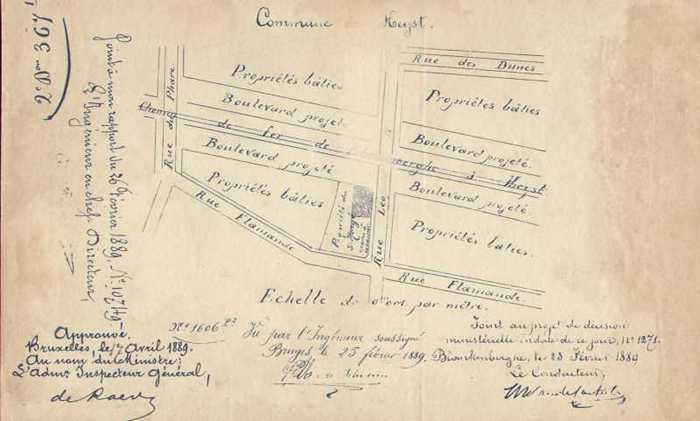 Commune Heyst.
2e Don 367
Joint à mon rapport du 26 février 1889 No 10749
L'Ingénieur en chef Directeur,
Rue des Dunes
Rue du Phare
Propriétés bâties
Propriétés bâties
Boulevard projeté
Boulevard projeté.
Chemin de fer de berghe à Heyst
Boulevard projeté
Boulevard projeté
Propriétés bâties
Propriété de
Rue Léo
Propriétés baties.
Rue Flamande
Rue Flamande.
Echelle de par mètre.
Approuvé.
Bruxelles, le 17 Avril 1889.
Au nom du Ministre:
L'admr Inspecteur Général,
de Raeve
No 1606
Vu par l'Ingénieur soussigné
Bruges le 25 février 1889.
Joint au projet de décision
ministérielle in date de ce jour, No 1271.
Blankenberghe, le 23 Février 1889
Le Conducteur,